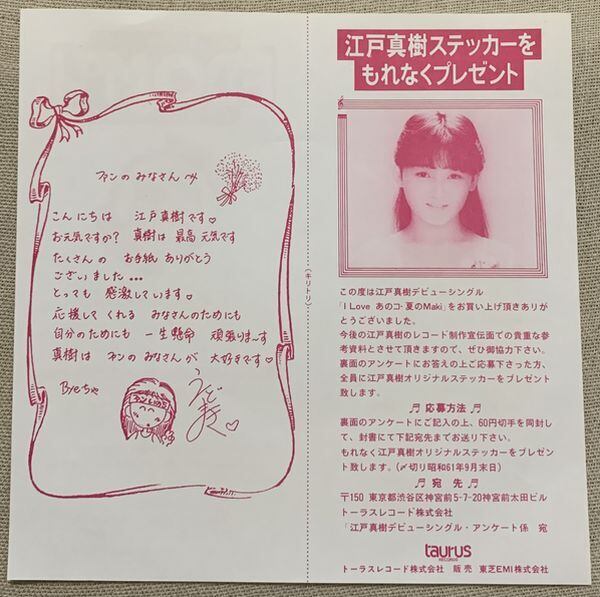 ファンの みなさんへ
こんにちは 江戸真樹です♡
お元気ですか? 真樹は 最高 元気です
たくさんの お手紙 ありがとう
ございました...
とっても 感激しています♡
応援して くれる みなさんのためにも
自分のためにも 一生懸命 頑張りまーす
真樹は ファンの みなさんが 大好きです♡
Byeちゃ
(キリトリ)
江戸真樹ステッカーを
もれなくプレゼント
この度は江戸真樹デビューシングル
「I Love あのコ・夏のMaki」をお買い上げ頂きありが
とうございました。
今後の江戸真樹のレコード制作宣伝面での貴重な参
考資料とさせて頂きますので、ぜひ御協力下さい。
裏面のアンケートにお答えの上ご応募下さった方、
全員に江戸真樹オリジナルステッカーをプレゼント
致します。
♬ 応募方法 ♬
裏面のアンケートにご記入の上、60円切手を同封し
て、封書にて下記宛先までお送り下さい。
もれなく江戸真樹オリジナルステッカーをプレゼン
ト致します。(〆切り昭和61年9月末日)
♬ 宛 先 ♬
〒150 東京都渋谷区神宮前5-7-20神宮前太田ビル
トーラスレコード株式会社
「江戸真樹デビューシングル・アンケート係 宛
taurus
RECORDS
トーラスレコード株式会社 販売 東芝EMI株式会社